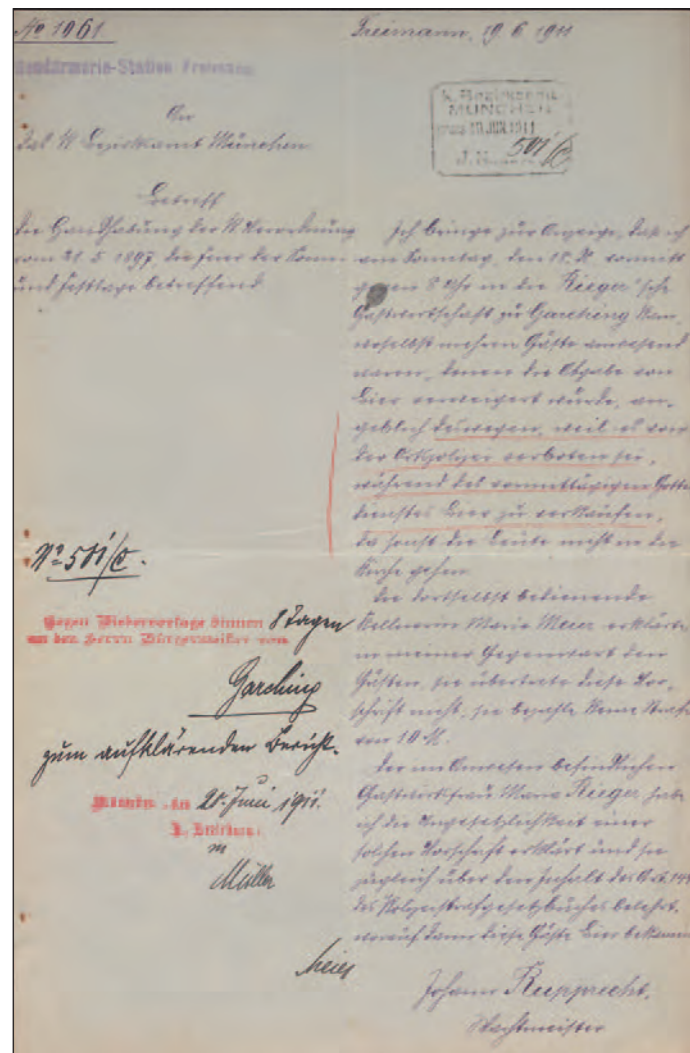 No 1961.
Gendarmerie-Station Freimann
An
das K. Bezirksamt München
Betreff
die Handhabung der K. Verordnung
vom 21.5.1897, die Feier der Sonn-
und Festtage betreffend
Freimann, 19.6.1911
K. Bezirksamt
MÜNCHEN
19. JUN. 1911
501/C
Ich bringe zur Anzeige, daß ich
am Sonntag, den 18. d. vormitt.
gegen 8 Uhr in die Rieger'sche
Gastwirtschaft zu Garching kam,
woselbst mehrere Gäste anwesend
waren, denen die Abgabe von
Bier verweigert wurde, an-
geblich deswegen, weil es von
der Ortspolizei verboten sei,
während des vormittägigen Gottes-
dienstes Bier zu verkaufen,
da sonst die Leute nicht in die
Kirche gehen.
Die dortselbst bedienende
Kellnerin Maria Meier erklärte
in meiner Gegenwart den
Gästen, sie übertrete diese Vor-
schrift nicht, sie bezahle keine Strafe
von 10 M.
Der im Anwesen befindlichen
Gastwirtsfrau Maria Rieger habe
ich die Ungesetzlichkeit einer
solchen Vorschrift erklärt und sie
zugleich über den Inhalt des Art.
des Polizeistrafgesetzbuches belehrt,
worauf dann diese Gäste Bier bekamen.
Johann Rupprecht,
Wachtmeister
No 501/C.
Gegen Wiedervorlage binnen 8 Tagen
an den Herrn Bürgermeister von
Garching
zum aufklärenden Bericht.
München, den 20. Juni 1911.
K. Bezirksamt:
Müller
Meier